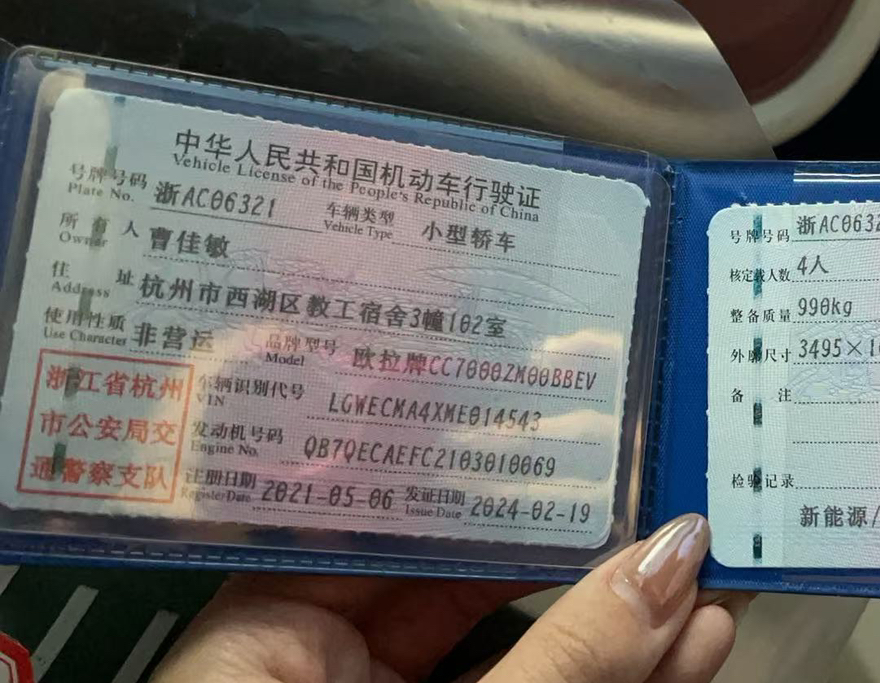 中华人民共和国机动车行驶证
Vehicle License of the People's Republic of China
号牌号码 浙AC06321 车辆类型 小型轿车
Plate No. Vehicle Type
所有人 曹佳敏
Owner
住址 杭州市西湖区教工宿舍3幢102室
Address
使用性质 非营运 品牌型号 欧拉牌CC7000ZM00BBEV
Use Character Model
浙江省杭州
市公安局交
通警察支队
车辆识别代号 LGWECMA4XME014543
VIN
发动机号码 QB7QECAEFC2103010069
Engine No.
注册日期 2021-05-06 发证日期 2024-02-19
Register Date Issue Date
号牌号码 浙AC0632
核定载人数 4人
整备质量 990kg
外廓尺寸 3495×1
备注
检验记录
新能源/